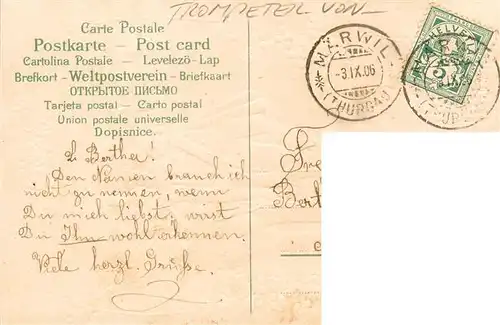 TROMPETER VON
Carte Postale
Postkarte — Post card
Cartolina Postale — Levelező-Lap
Brefkort - Weltpostverein - Briefkaart
ОТКРЫТОЕ ПИСЬМО
Tarjeta postal — Carto postal
Union postale universelle
Dopisnice.
MÄRWIL
-3.IX.06
(THURGAU)
HELVETIA
5
L. Bertha!
Den Namen brauch ich
nicht zu nennen, wenn
Du mich liebst, wirst
Du Ihn wohl erkennen.
Viele herzl. Grüsse.
Berth